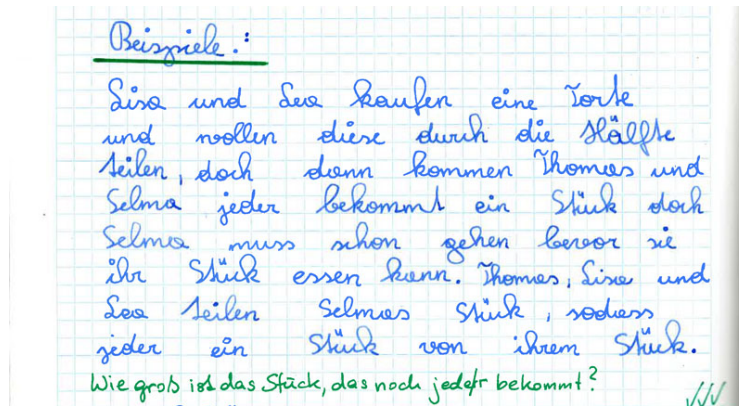 Beispiele:
Lisa und Lea kaufen eine Torte
und wollen diese durch die Hälfte
teilen, doch dann kommen Thomas und
Selma jeder bekommt ein Stück doch
Selma muss schon gehen bevor sie
ihr Stück essen kann. Thomas, Lisa und
Lea teilen Selmas Stück, sodass
jeder ein Stück von ihrem Stück.
Wie groß ist das Stück, das noch jeder bekommt?